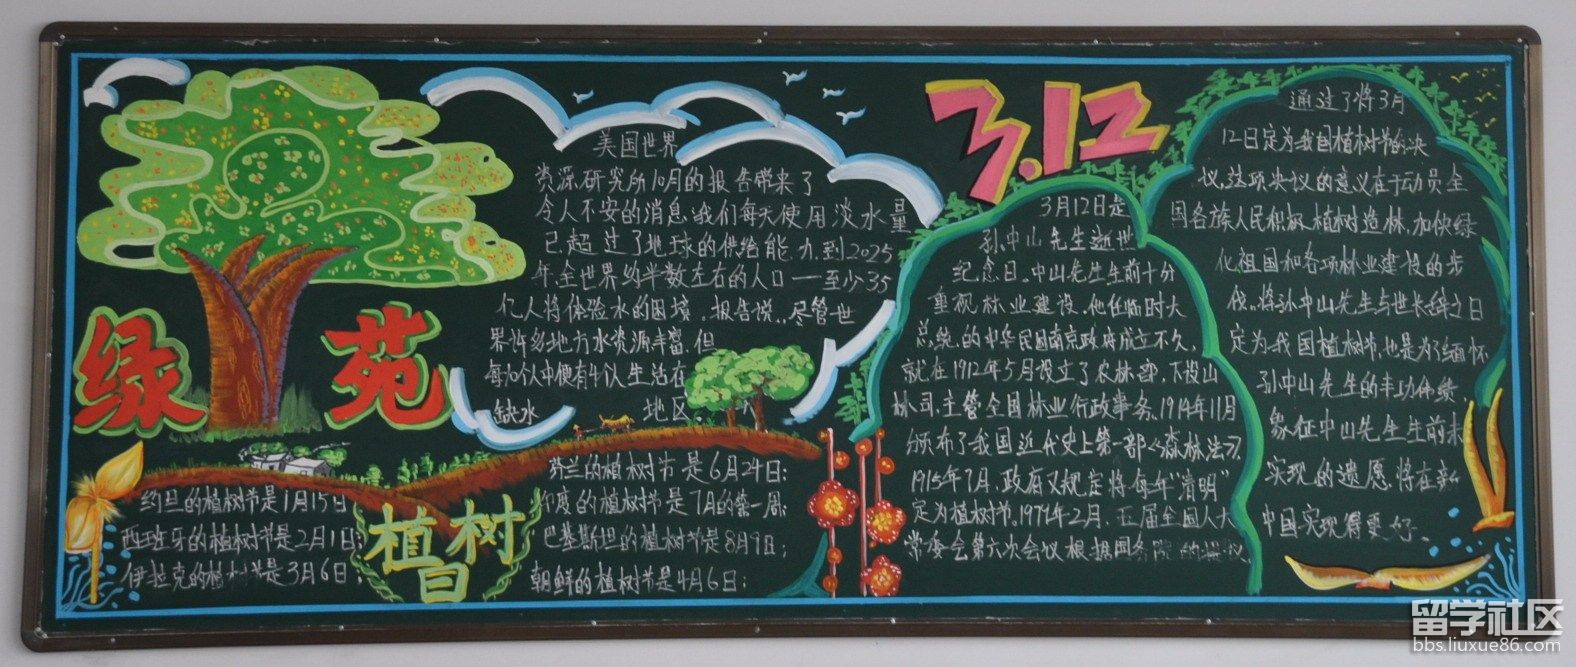 绿苑
美国世界
资源研究所10月的报告带来了
令人不安的消息:我们每天使用淡水量
已超过了地球的供给能力到2025
年,全世界均半数左右的人口——至少35
亿人将体验水的困境.报告说,尽管世
界许多地方水资源丰富,但
每10个人中便有4个人生活在
缺水 地区
约旦的植树节是1月15日
西班牙的植树节是2月1日;
伊拉克的植树节是3月6日;
植树
日
芬兰的植树节是6月24日;
印度的植树节是7月的第一周;
巴基斯坦的植树节是8月9日;
朝鲜的植树节是4月6日;
3.12
3月12日是
孙中山先生逝世
纪念日.中山先生生前十分
重视林业建设.他任临时大
总统的中华民国南京政府成立不久,
就在1912年5月设立了农林部,下设山
林司,主管全国林业行政事务.1914年11月
颁布了我国近代史上第一部《森林法》.
1915年7月,政府又规定将每年"清明"
定为植树节.1979年2月,五届全国人大
常委会第六次会议根据国务院的提议
通过了将3月
12日定为我国植树节的决
议,这项决议的意义在于动员全
国各族人民积极植树造林,加快绿
化祖国和各项林业建设的步
伐。将孙中山先生与世长辞之日
定为我国植树节,也是为了缅怀
孙中山先生的丰功伟绩,
象征中山先生生前未
实现的遗愿将在新
中国实现得更好。
留学社区
bbs.liuxue86.com